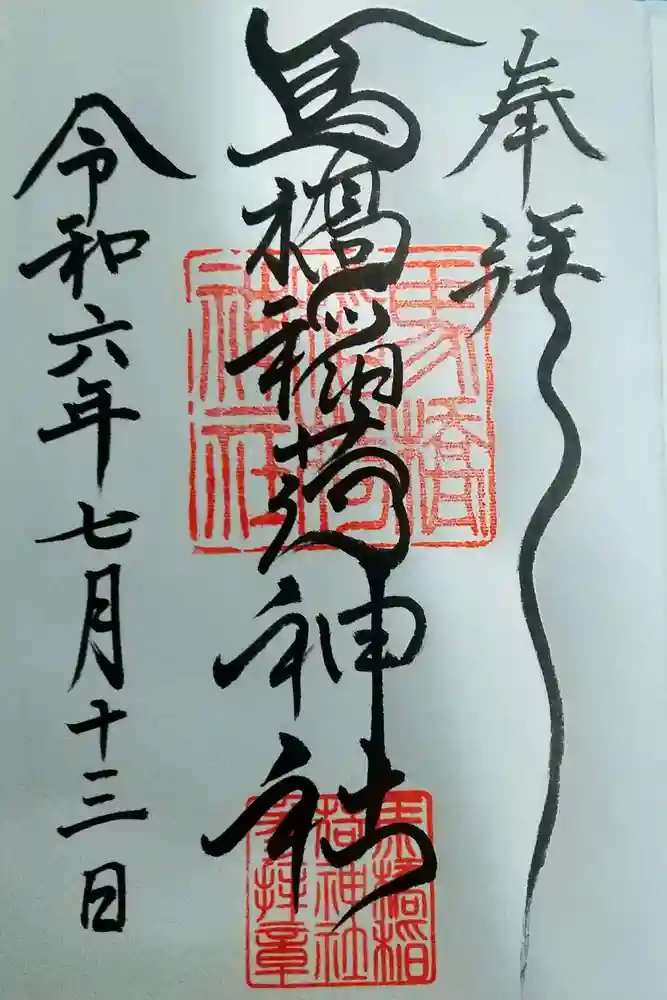 奉拝
馬橋稲荷神社
令和六年七月十三日
馬橋
稲荷
神社
馬橋稲
荷神社